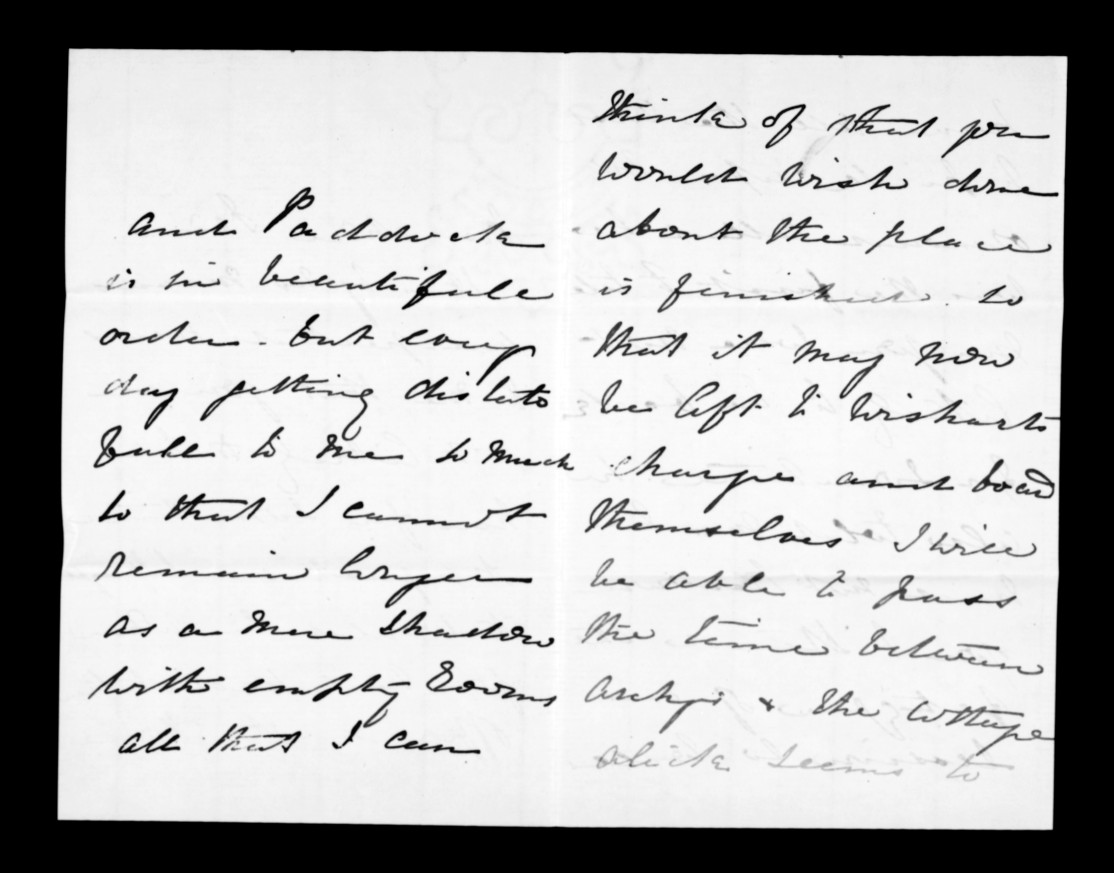 and Paddock
is in beautifull
order. but every
day getting distate
full to me so much
so that I cannot
remain longer
as a mere shadow
with empty Rooms
all that I can
think of that you
would wish done
about the place
is finished. so
that it may now
be left to Wisharts
charge and board
themselves I will
be able to pass
the time between
& the Cottage
alick seems to